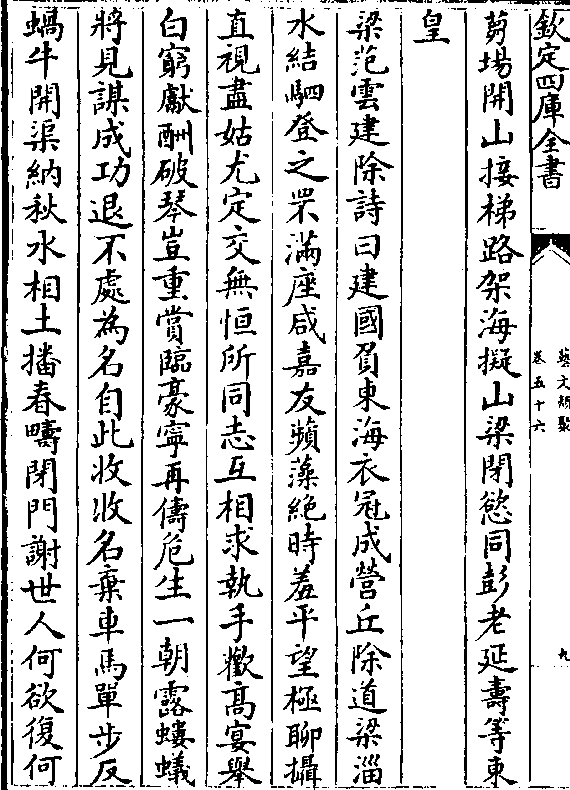 欽定四庫全書
藝文類聚
卷五十六
九
蒭場開山接梯路架海擬山梁閉慾同彭老延壽等東
皇
梁范雲建除詩曰建國負東海衣冠成營丘除道梁淄
水結駟登之罘滿座咸嘉友蘋藻絶時羞平望極聊攝
直視盡姑尤定交無恒所同志互相求執手歡高宴舉
白窮獻酬破琴豈重賞臨豪寧再儔危生一朝露螻蟻
將見謀成功退不處為名自此收收名棄車馬單步反
蝸牛開渠納秋水相土播春疇閉門謝世人何欲復何